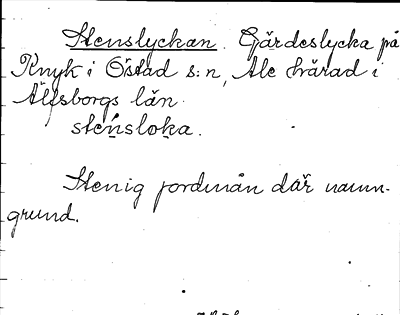 Stenslyckan. Gärdeslycka på
Knyk i Östad s:n, Ale härad i
Älfsborgs län.
stensloka.
Stenig jordmån där namn-
grund.